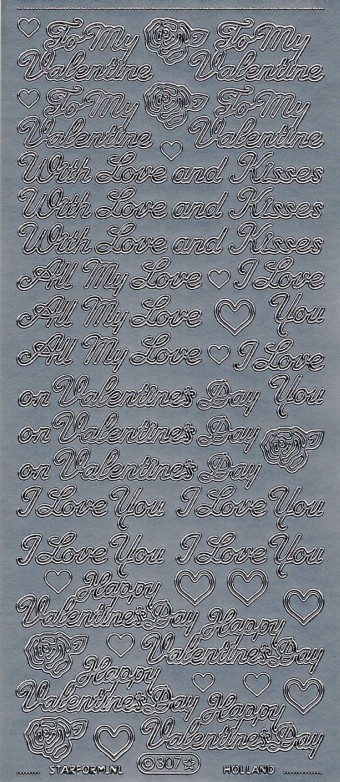 To My To My
Valentine Valentine
To My To My
Valentine Valentine
With Love and Kisses
With Love and Kisses
With Love and Kisses
All My Love I Love
All My Love You
All My Love I Love
on Valentine's Day You
on Valentine's Day
on Valentine's Day
I Love You I Love You
I Love You I Love You
Happy
Valentine's Day Happy
Valentine's Day
Happy
Valentine's Day Happy
Valentine's Day
STARFORM.NL © 307 HOLLAND